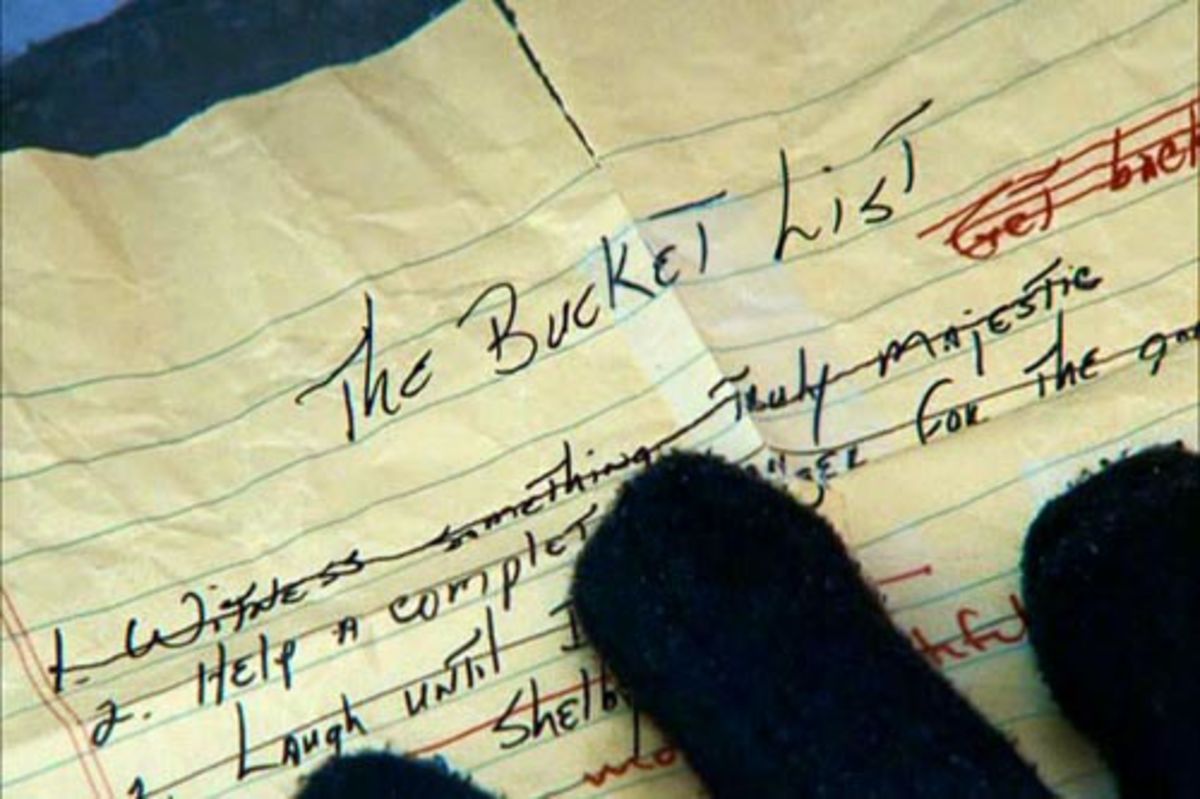 The Bucket List
Get back
1. Witness something Truly majestic
2. Help a complet for the
Laugh until I
Shelby